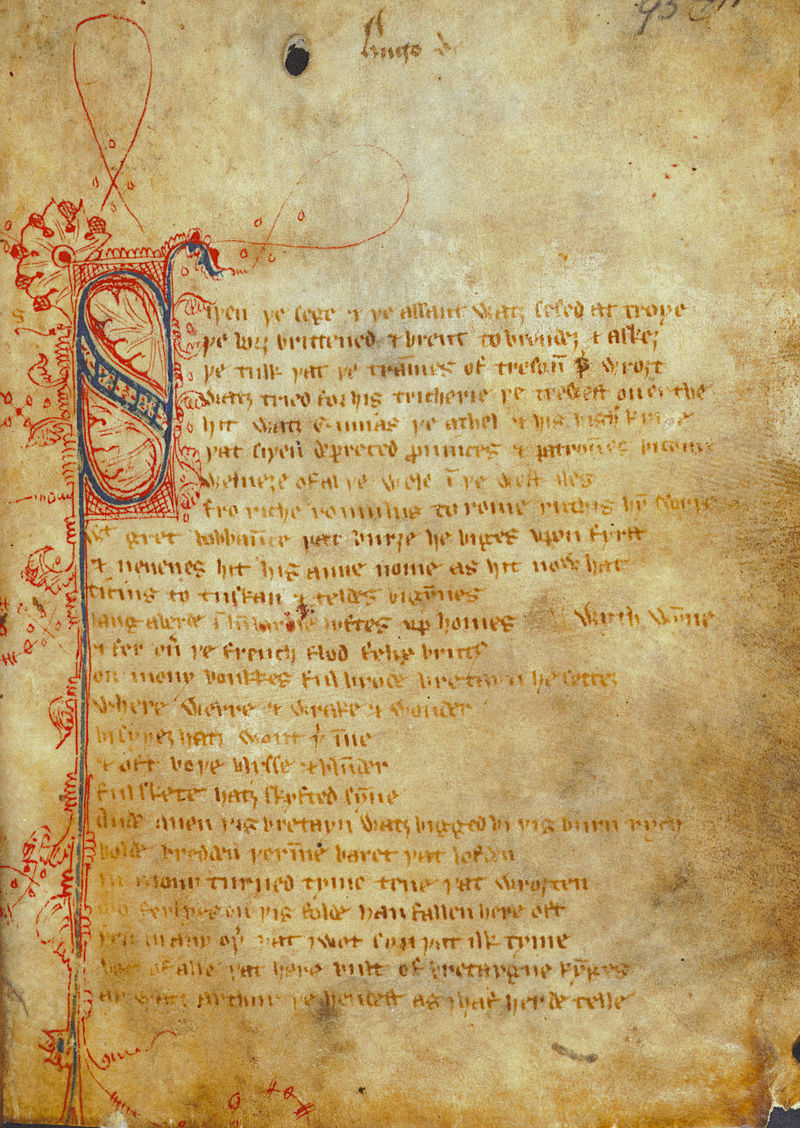 Hugo de
Siþen þe sege & þe assaut watz sesed at troye
þe borȝ brittened & brent to brondeȝ & askez
þe tulk þat þe trāmes of tresoū þ̵ wroȝt
watz tried for his tricherie þe trewest on erthe
hit watz ennias þe athel & his highe kynde
þat siþen depreced prouinces & patroūes bicome
welneȝe of al þe wele ī þe west iles
fro riche romulus to rome ricchis hȳ swyþe
gret bobbaūce þat burȝe he biges vpon fyrst
& neuenes hit his aune nome as hit now hat
ticius to tuskan & teldes bigȳnes
langaberde ī lumbardie lyftes vp homes
wyth wȳne
& fer oū þe french flod felix brutus
on mony bonkkes ful brode bretayn he settez
where werre & wrake & wonder
bi syþez hatz wont þ ī̄ne
& oft boþe blysse & blūder
ful skete hatz skyfted sȳne
Ande quen þis bretayn watz bigged bi þis burn rych
bolde bredden þerī̄ne baret þat lofden
in mony turned tyme tene þat wroȝten
mo ferlyes on þis folde han fallen here oft
þen in any oþ̄ þat i wot syn þat ilk tyme
bot of alle þat here bult of bretaygne kȳges
ay watz arthur þe hendest as i haf herde telle